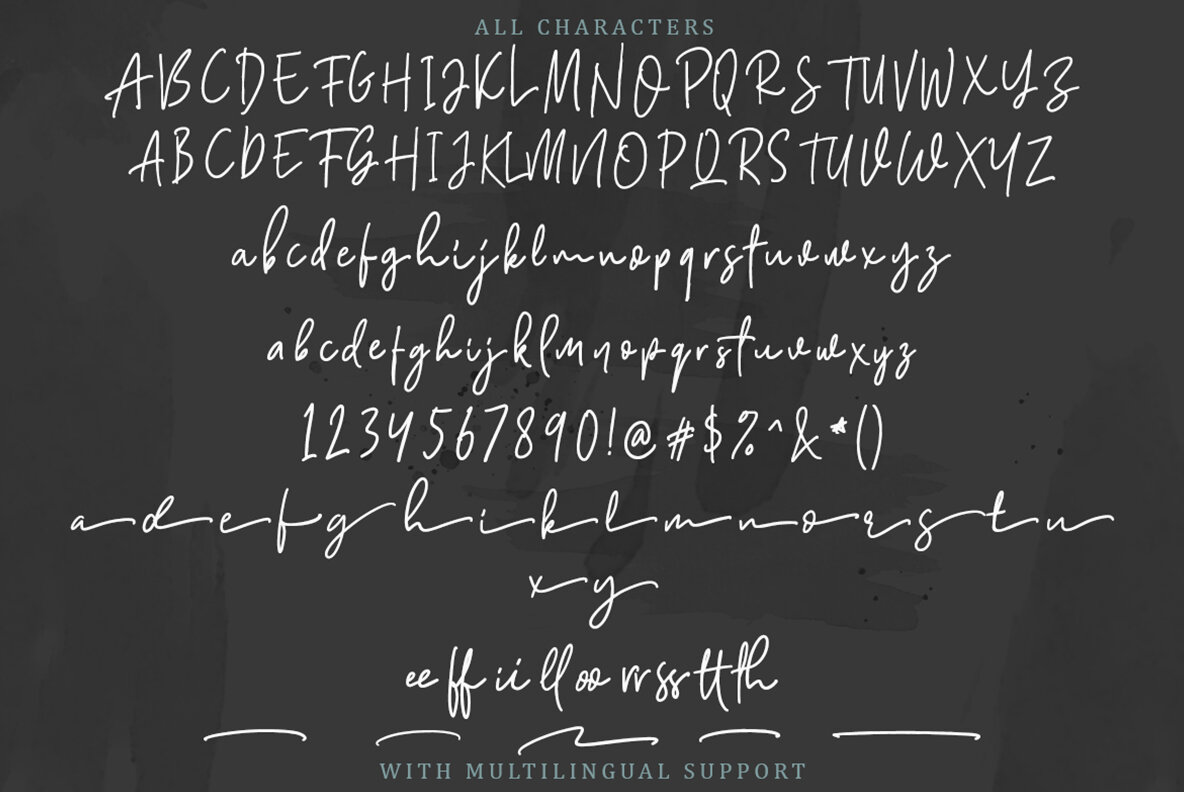 ALL CHARACTERS
ABCDEFGHIJKLMNOPQRSTUVWXYZ
ABCDEFGHIJKLMNOPQRSTUVWXYZ
abcdefghijklmnopqrstuvwxyz
abcdefghijklmnopqrstuvwxyz
1234567890!@#$%^&*()
adefghiklmnorstu
xy
ee ff ii ll oo rr ss tt th
WITH MULTILINGUAL SUPPORT